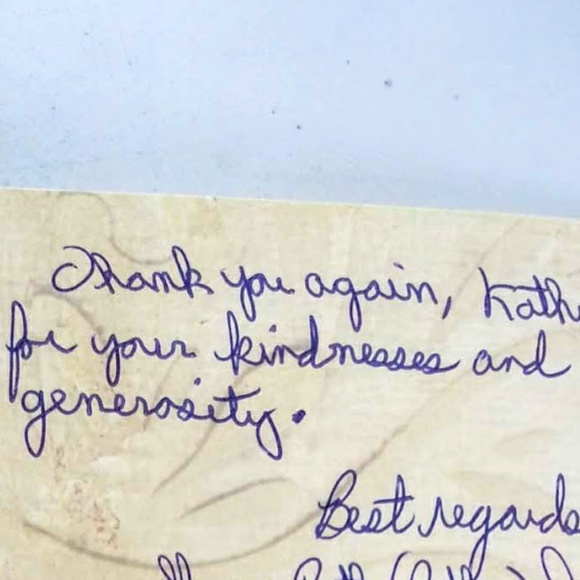 Thank you again, Kath
for your kindnesses and
generosity.
Best regards